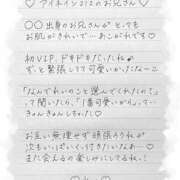 ♡ アイネイン212のお兄さん ♡
○○出身のお兄さんが とっても
お肌がきれいで…あこがれです♡
初VIP、ドキドキだったね
ずっと緊張してて可愛いかったなーこ
「なんでれいのこと選んでくれたの？」
って聞いたら、「1番可愛いから」って
きゅんきゅんしちゃった♡
お互い無理せず頑張ろうね
次もいっぱいくっいて甘えたいな♡
また会えるの楽しみにしてるね！